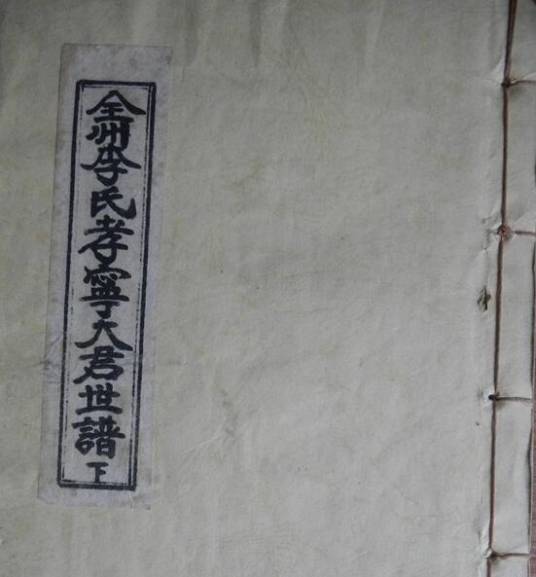 全州李氏孝寧大君世譜 下